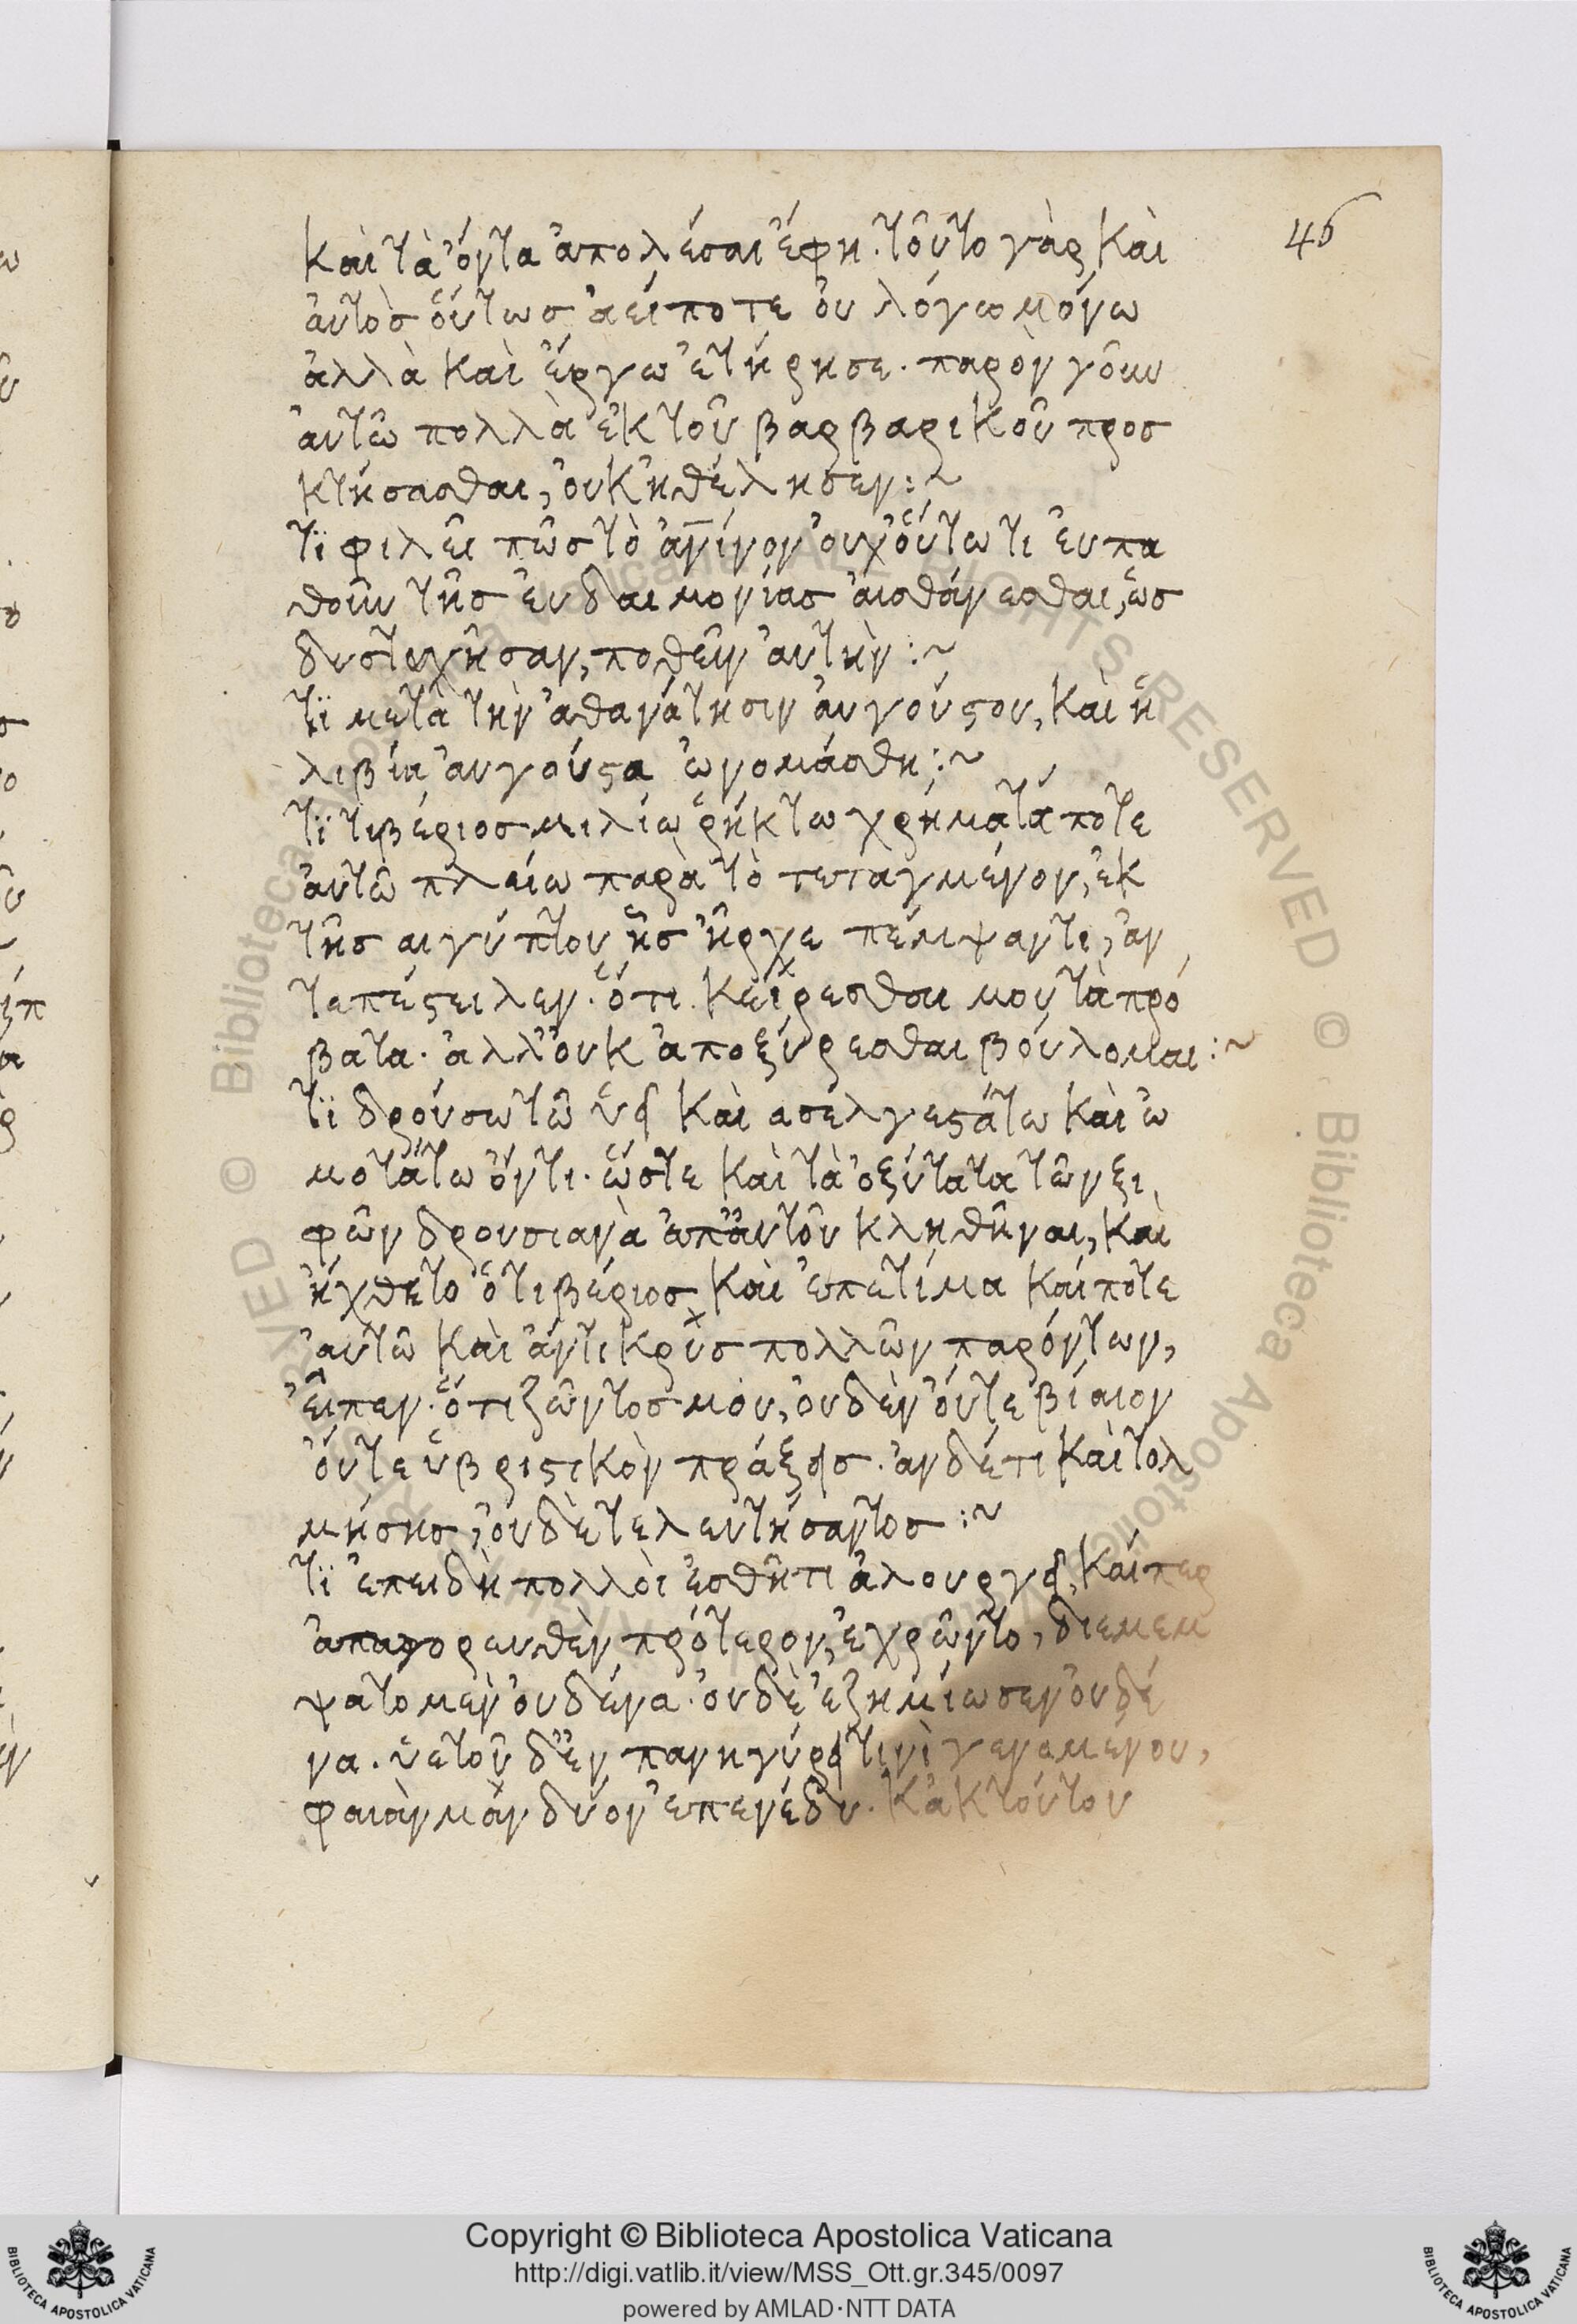 46
καὶ τὰ ὄντα ἀπολέσαι ἔφη. τοῦτο γὰρ καὶ
ἀυτὸσ ὅυτωσ ἀεί ποτε ὀυ λόγω μόνω
ἀλλὰ καὶ ἔργω ἐτήρησε. παρὸν γοῦν
ἀυτῶ πολλὰ ἐκ τοῦ βαρβαρικοῦ προσ
κτήσασθαι, ὀυκ ἠθέλησεν:~
τϊ φιλεῖ πῶσ τὸ ἀνίνον ὀυχ ὅυτω τι ἐυπα
θοῦν τῆσ ἐυδαιμονίασ ἀισθάνεσθαι, ὡσ
δυστυχῆσαν, ποθεῖν ἀυτήν:~
τϊ μετὰ τὴν ἀθανάτησιν ἀυγούστου, καὶ ἡ
λιβία ἀυγούστα ὠνομάσθη:~
τϊ τιβέριοσ μιλίω ῥήκτω χρήματά ποτε
ἀυτῶ πλείω παρὰ τὸ τεταγμένον, ἐκ
τῆσ αιγύπτου ἧσ ἦρχε πέμψαντι, ἀν
ταπέστειλεν. ὅτι κείρεσθαι μου τὰ πρό
βατα. ἀλλ' ὀυκ ἀποξύρεσθαι βούλομαι:~
τϊ δρούσω τῶ ὑεῖ καὶ ασελγεστάτω καὶ ὠ
μοτάτω ὄντι. ὥστε καὶ τὰ ὀξύτατα τῶν ξι
φῶν δρουσιανὰ ἀπ' ἀυτοῦ κληθῆναι, καὶ
ἤχθετο ὁ τιβέριοσ καὶ ἐπετίμα καί ποτε
ἀυτῶ καὶ ἀντικρὺσ πολλῶν παρόντων,
εἶπεν. ὅτι ζῶντοσ μου, ὀυδὲν ὄυτε βίαιον
ὄυτε ὑβριστικὸν πράξεισ. ἀν δέ τι καὶ τολ
μήσησ, ὀυδὲ τελευτήσαντοσ:~
τϊ ἐπειδὴ πολλοὶ ἐσθῆτι ἁλουργεῖ, καίπερ
ἀπαγορευθὲν πρότερον, ἐχρῶντο, διεμέμ
ψατο μὲν ὀυδένα. ὀυδὲ ἐζημίωσεν ὀυδέ
να. ὑετοῦ δ' ἐν πανηγύρει τινὶ γεναμένου,
φαιὰν μανδύον ἐπενέδυ. κἀκ τούτου
Copyright © Biblioteca Apostolica Vaticana
http://digi.vatlib.it/view/MSS_Ott.gr.345/0097
powered by AMLAD·NTT DATA